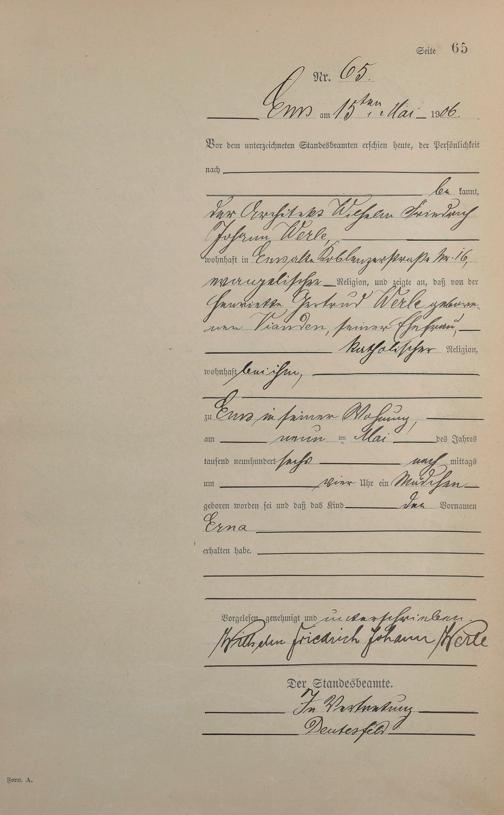 Seite 65
Nr. 65.
Ems am 15ten Mai 1906.
Vor dem unterzeichneten Standesbeamten erschien heute, der Persönlichkeit
nach
be kannt,
der Architekt Wilhelm Friedrich
Johann Werle,
wohnhaft in Ems, alte Koblenzerstraße Nr. 16,
evangelischer Religion, und zeigte an, daß von der
Henriette Gertrud Werle gebore-
nen Vianden, seiner Ehefrau,
katholischer Religion,
wohnhaft bei ihm,
zu Ems in seiner Wohnung,
am neun ten Mai des Jahres
tausend neunhundert sechs nach mittags
um vier Uhr ein Mädchen
geboren worden sei und daß das Kind den Vornamen
Erna
erhalten habe.
Vorgelesen, genehmigt und unterschrieben
Wilhelm Friedrich Johann Werle
Der Standesbeamte.
In Vertretung
Deutesfeld
Form. A.